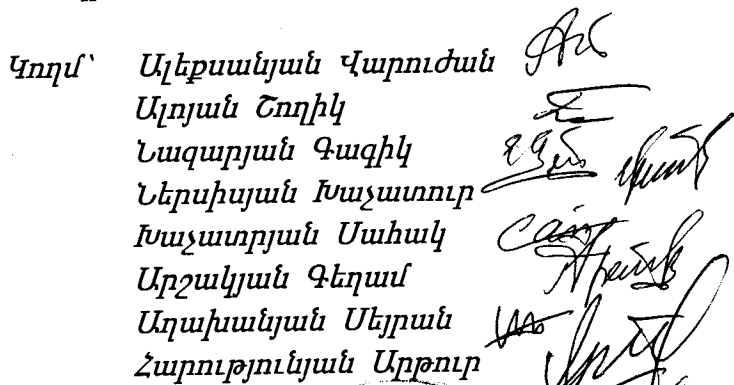 Կողմ՝ Ալեքսանյան Վարուժան
Ալոյան Շողիկ
Նազարյան Գագիկ
Ներսիսյան Խաչատուր
Խաչատրյան Սահակ
Արշակյան Գեղամ
Աղախանյան Սեյրան
Հարությունյան Արթուր